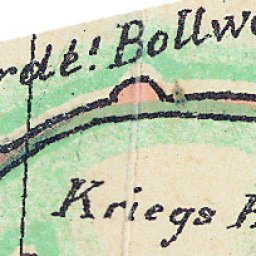 rdé! Bollw
Kriegs